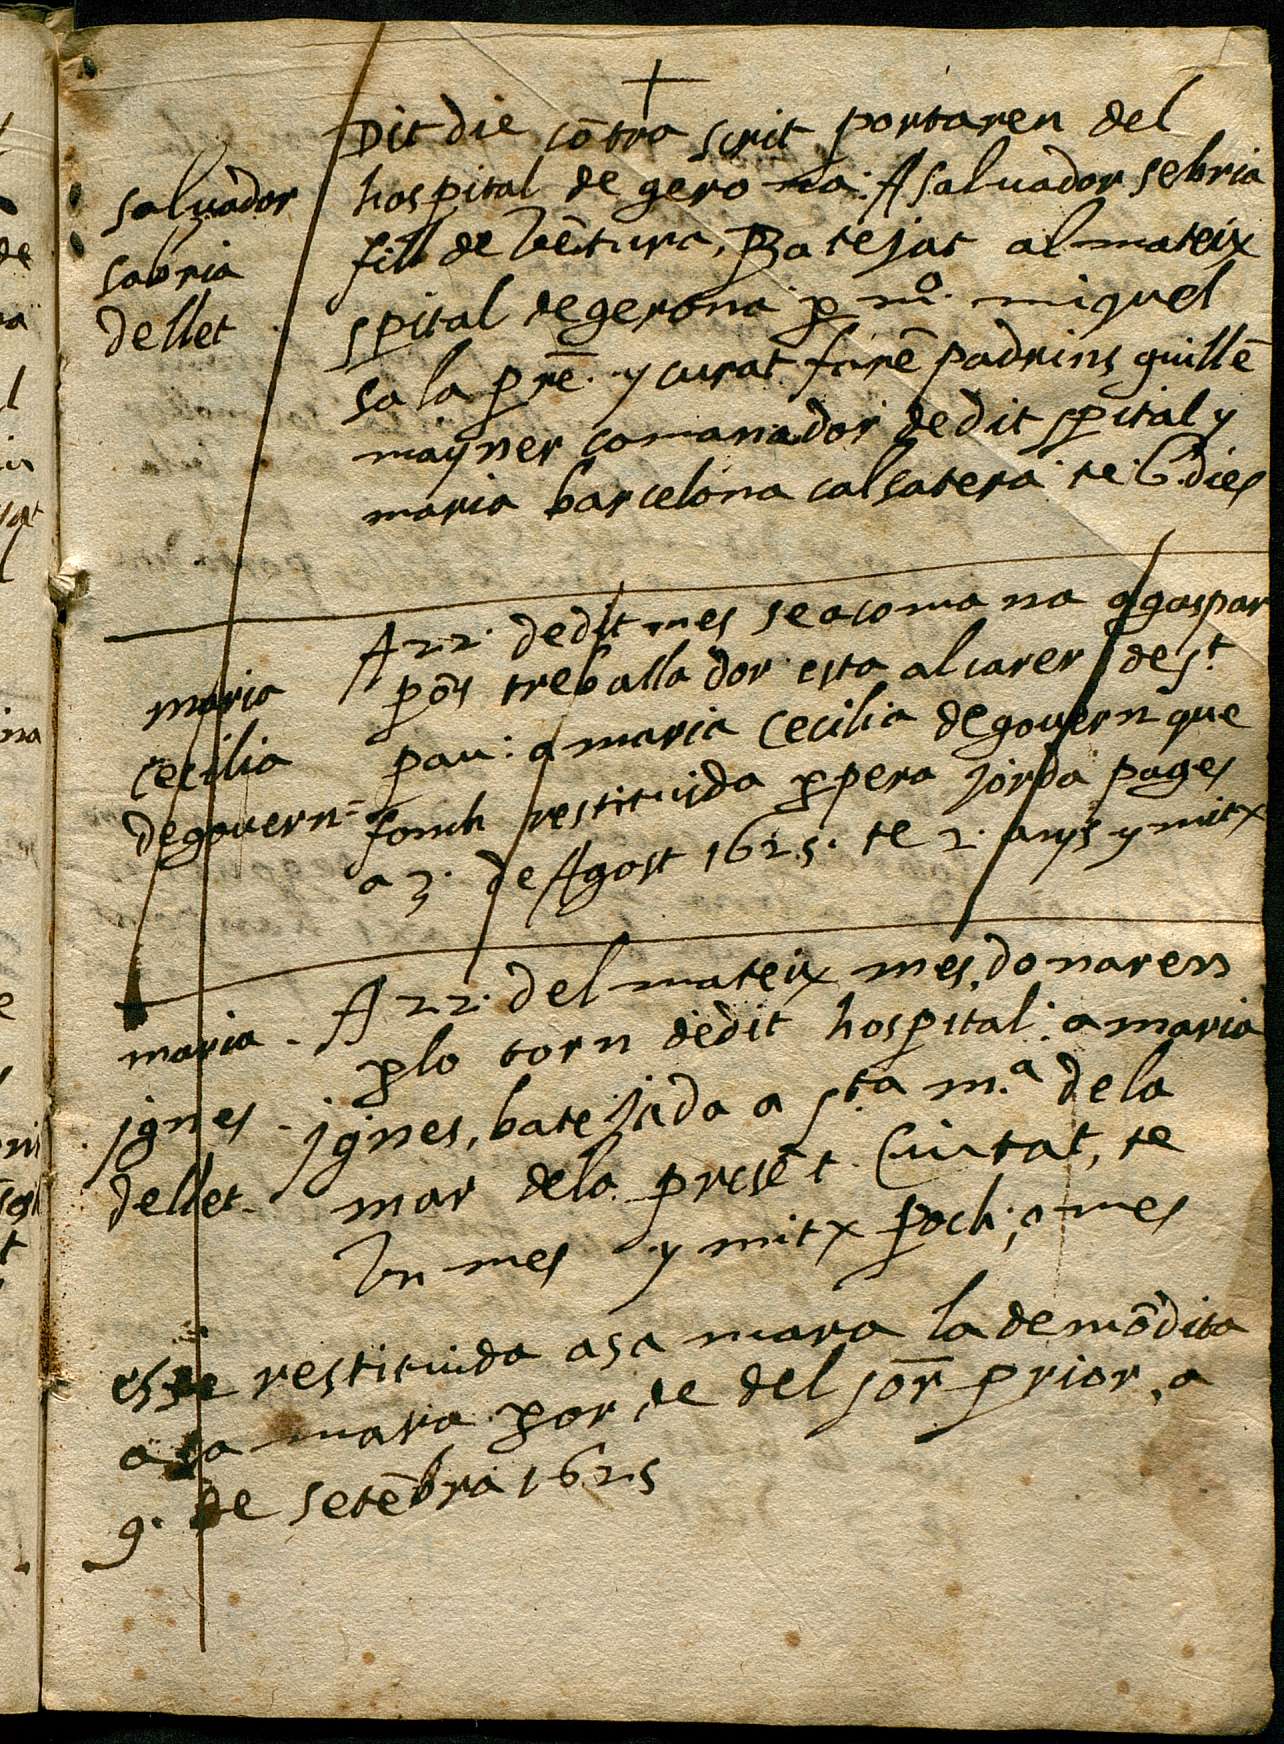 Dit die cōtra scrit portaren del
hospital de gerona: A saluador sebria
fill de Vētura, Batejat al mateix
spital de gerona p mº. miquel
sala prē. y curat. forē padrins guillē
mayner comanador de dit spital y
maria barcelona calsatera te 6 dies
saluador
sabria
de llet.
A 22. de dit mes se acomana a gaspar
pōs treballador esta al carer de st.
pau: a maria Cecilia de gouern que
fonch restituida p pera jorda pages
a 3. de Agost 1625. te 2. anys y mitx
maria
Cecilia
de gouern =
A 22. del mateix mes, donaren
plo torn de dit hospital: a maria
jgnes, batejada a sta m.a de la
mar de la presēt Ciutat, te
Vn mes y mitx poch, a mes
maria -
jgnes -
de llet -
es se restituida a sa mara la demōdita
a sa mara p orde del sōr prior, a
9. de setēbra 1625